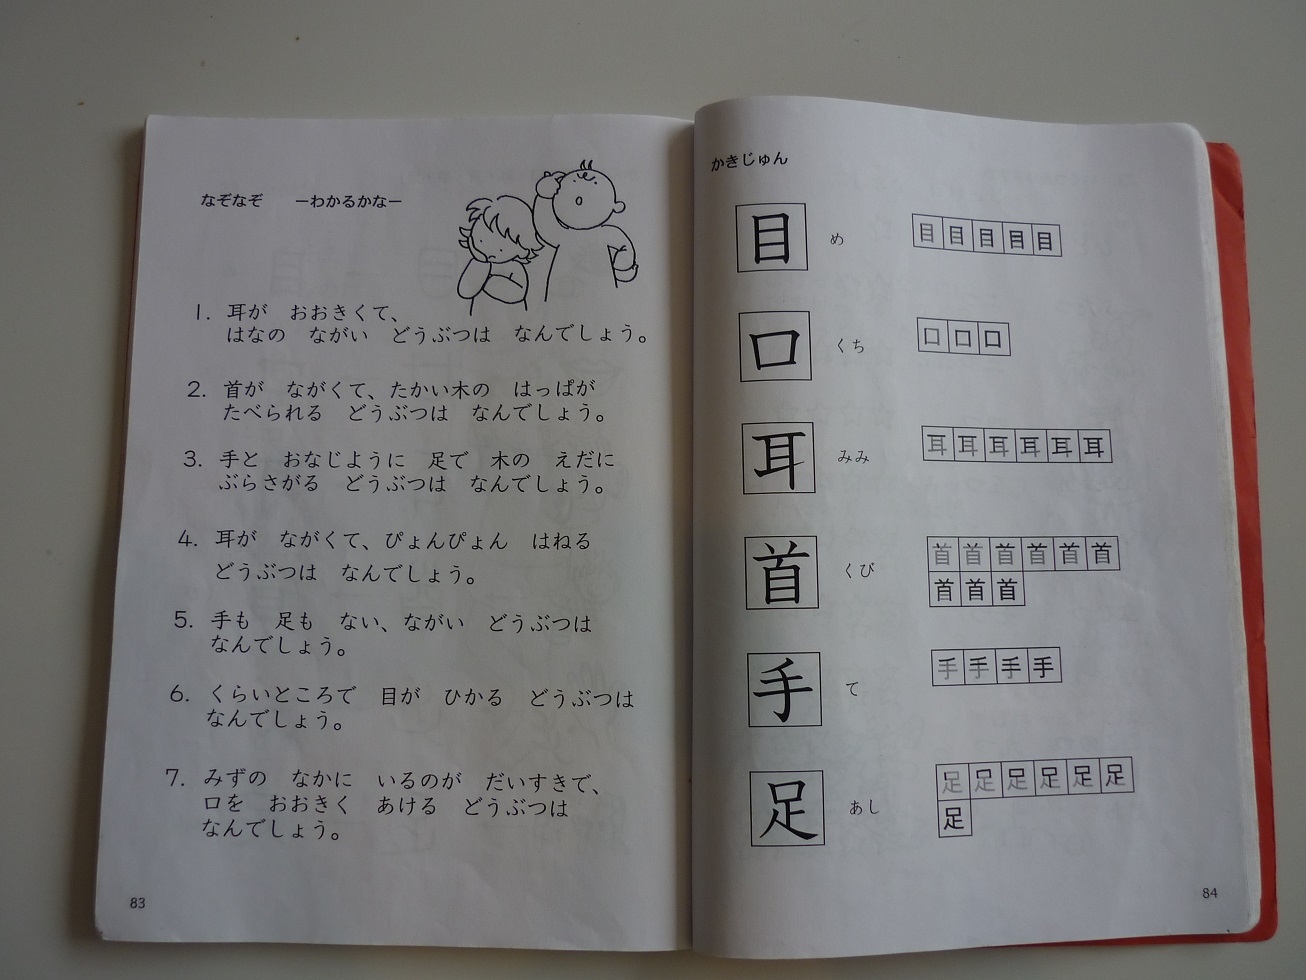 なぞなぞ　ーわかるかなー
1. 耳が　おおきくて、
はなの　ながい　どうぶつは　なんでしょう。
2. 首が　ながくて、たかい木の　はっぱが
たべられる　どうぶつは　なんでしょう。
3. 手と　おなじように　足で　木の　えだに
ぶらさがる　どうぶつは　なんでしょう。
4. 耳が　ながくて、ぴょんぴょん　はねる
どうぶつは　なんでしょう。
5. 手も　足も　ない、ながい　どうぶつは
なんでしょう。
6. くらいところで　目が　ひかる　どうぶつは
なんでしょう。
7. みずの　なかに　いるのが　だいすきで、
口を　おおきく　あける　どうぶつは
なんでしょう。
83
かきじゅん
目　め　目目目目目
口　くち　口口口
耳　みみ　耳耳耳耳耳耳
首　くび　首首首首首首
首首首
手　て　手手手手
足　あし　足足足足足足
足
84